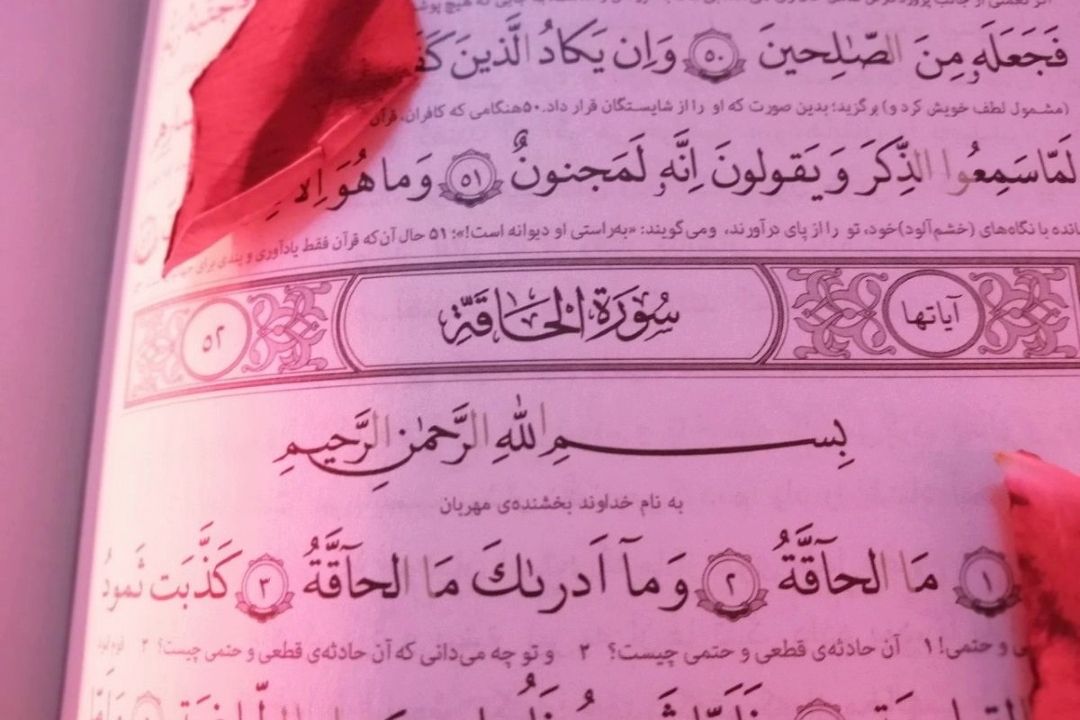 فَجَعَلَهُ مِنَ الصّٰلِحينَ ﴿۵۰﴾ وَاِن يَكادُ الَّذينَ
(مشمول لطف خویش کرد و) برگزید؛ بدین صورت که او را از شایستگان قرار داد. ۵۰ هنگامی که کافران، قرآن
لَمّا سَمِعُوا الذِّكرَ وَ يَقولونَ اِنَّهُ لَمَجنونٌ ﴿۵۱﴾ وَما هُوَ اِلّا
با نگاه‌های (خشم‌آلود) خود، تو را از پای درآورند، ومی‌گویند: «به‌راستی او دیوانه است!»؛ ۵۱ حال آن‌که قرآن فقط یادآوری و پندی برای
آیاتها سُورَةُ الْحَاقَّةِ ۵۲
بِسمِ اللهِ الرَّحمٰنِ الرَّحيمِ
به نام خداوند بخشنده‌ی مهربان
﴿۱﴾ مَا الحآقَّةُ ﴿۲﴾ وَمآ اَدرىٰكَ مَا الحآقَّةُ ﴿۳﴾ كَذَّبَت ثَمودُ
و حتمی! ۱ آن حادثه‌ی قطعی و حتمی چیست؟ ۲ و تو چه می‌دانی که آن حادثه‌ی قطعی و حتمی چیست؟ ۳ قوم ثمود